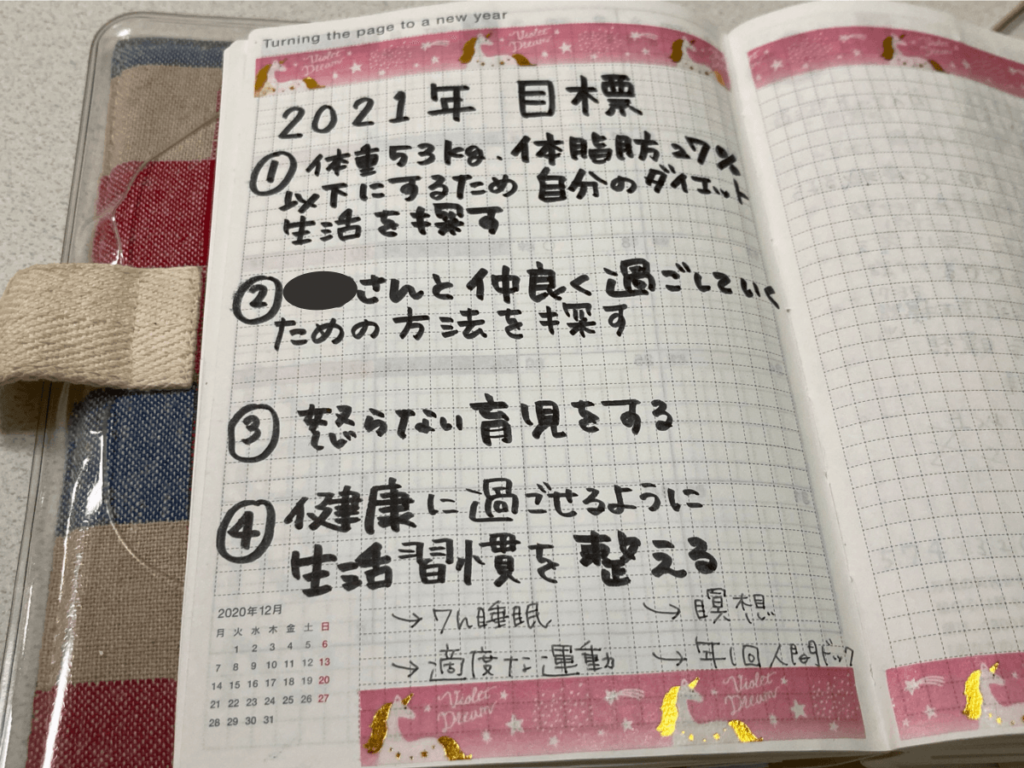 Turning the page to a new year
Violet Dream
Violet Dream
2021年 目標
① 体重53kg.体脂肪27%
以下にするため 自分のダイエット
生活を探す
② さんと仲良く過ごしていく
ための方法を探す
③ 怒らない育児をする
④ 健康に過ごせるように
生活習慣を整える
→ 7h睡眠 → 瞑想
→ 適度な運動 → 年1回人間ドック
2020年12月
月 火 水 木 金 土 日
1 2 3 4 5 6
7 8 9 10 11 12 13
14 15 16 17 18 19 20
21 22 23 24 25 26 27
28 29 30 31
Violet Dream
Violet Dream
Violet Dream